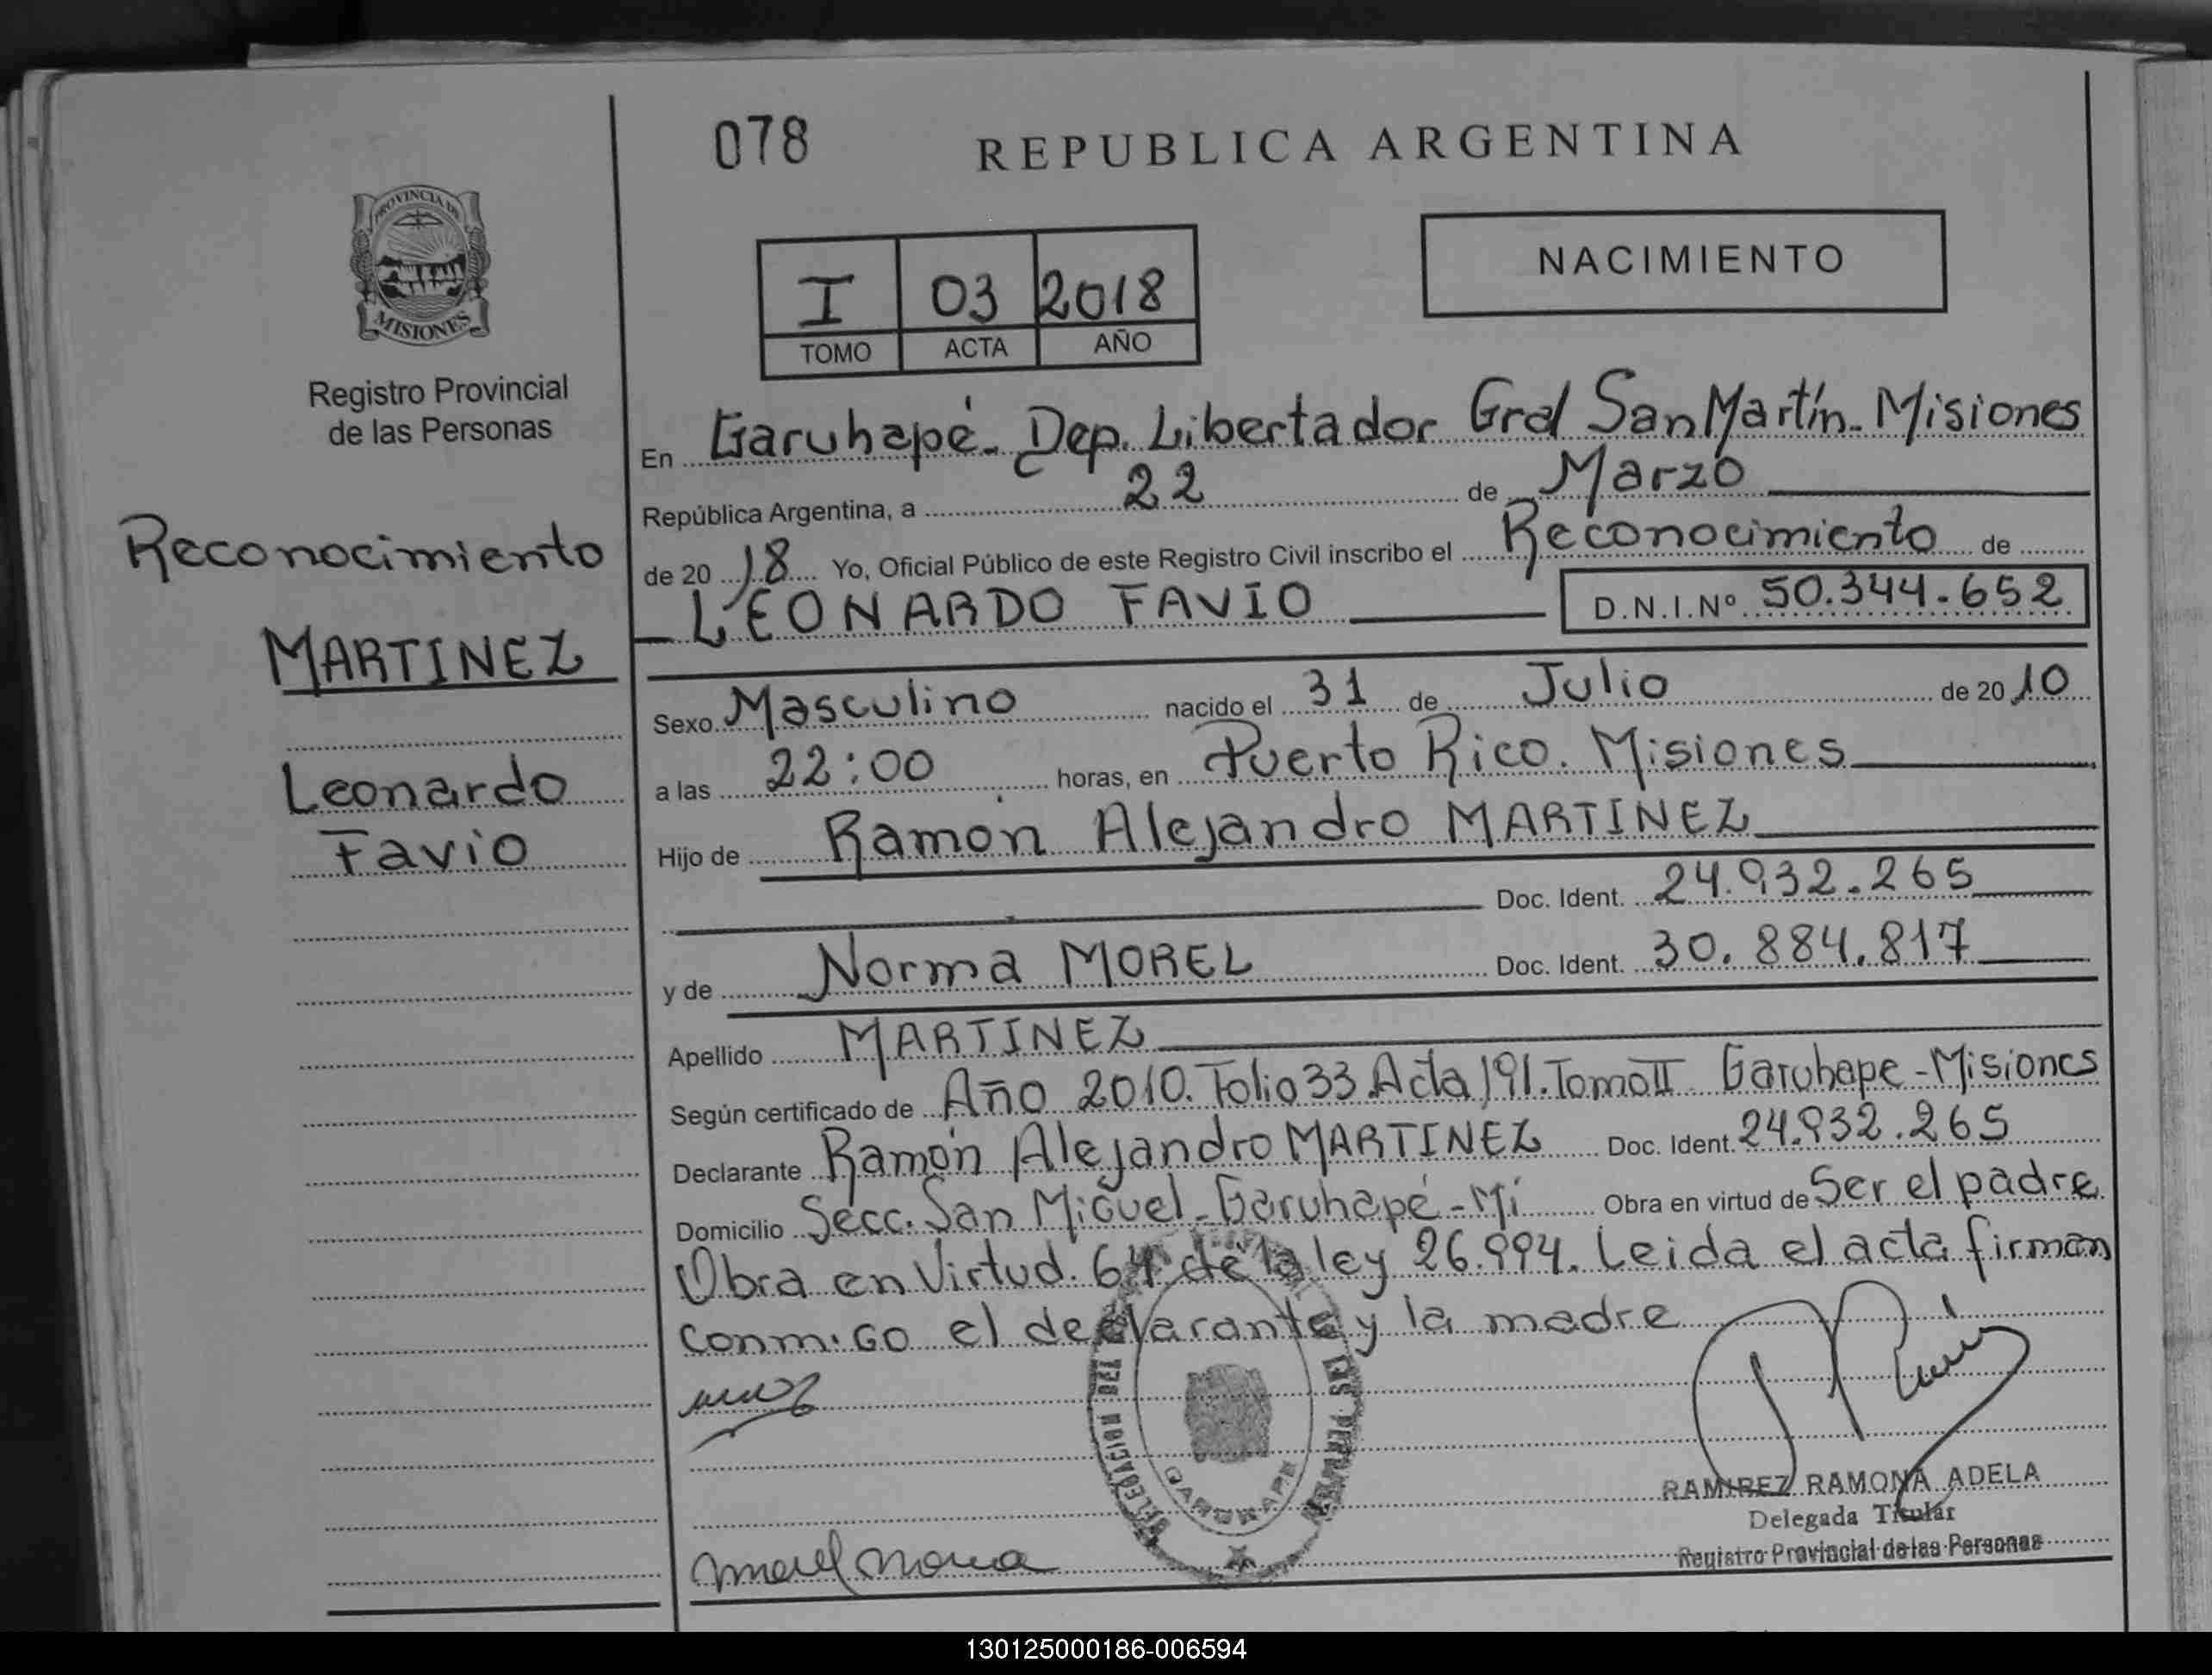 078
REPUBLICA ARGENTINA
PROVINCIA DE
MISIONES
Registro Provincial
de las Personas
I 03 2018
TOMO ACTA AÑO
NACIMIENTO
En Garuhapé. Dep. Libertador Gral San Martín. Misiones
República Argentina, a 22 de Marzo
de 2018 Yo, Oficial Público de este Registro Civil inscribo el Reconocimiento de
LEONARDO FAVIO D.N.I.Nº 50.344.652
Reconocimiento
MARTINEZ
Leonardo
Favio
Sexo Masculino nacido el 31 de Julio de 2010
a las 22:00 horas, en Puerto Rico. Misiones
Hijo de Ramón Alejandro MARTINEZ
Doc. Ident. 24.932.265
y de Norma MOREL Doc. Ident. 30.884.817
Apellido MARTINEZ
Según certificado de Año 2010. Folio 33. Acta 191. Tomo II Garuhape - Misiones
Declarante Ramón Alejandro MARTINEZ Doc. Ident. 24.932.265
Domicilio Secc. San Miguel - Garuhapé - Mi Obra en virtud de Ser el padre
Obra en Virtud. 64 de la ley 26.994. Leida el acta firman
conmigo el declarante y la madre
DELEGACION DEL
LAS PERSONAS
GARUHAPE
RAMIREZ RAMONA ADELA
Delegada Titular
Registro Provincial de las Personas
Morel Norma
130125000186-006594